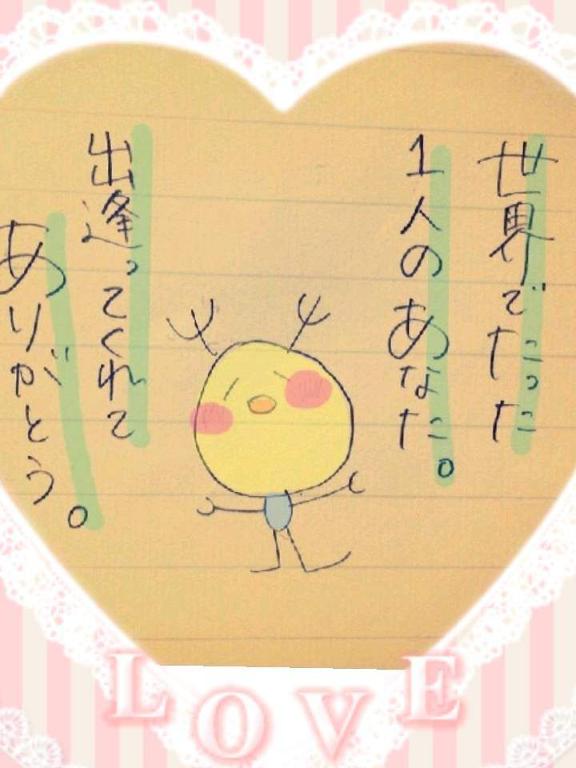 世界でたった
1人のあなた。
出逢ってくれて
ありがとう。
LOVE